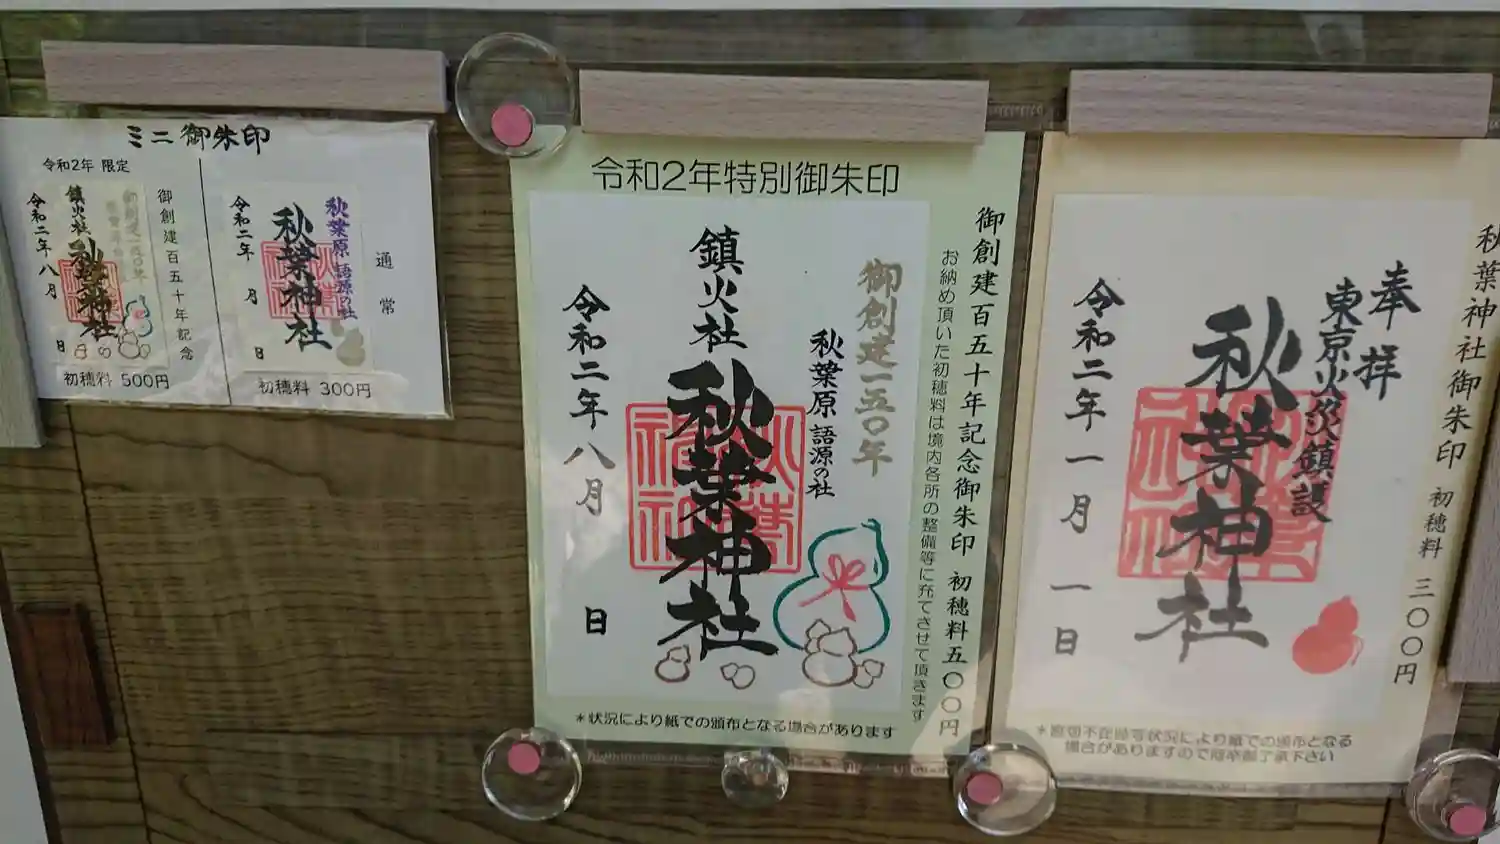 ミニ御朱印
令和2年 限定
御創建百五十年記念
御創建一五〇年
鎮火社
秋葉神社
令和二年八月
日
初穂料 500円
通常
秋葉原 語源の社
秋葉神社
令和二年
月
日
初穂料 300円
令和2年特別御朱印
御創建百五十年記念御朱印 初穂料五〇〇円
お納め頂いた初穂料は境内各所の整備等に充てさせて頂きます
御創建一五〇年
秋葉原 語源の社
鎮火社
秋葉神社
令和二年八月
日
*状況により紙での頒布となる場合があります
秋葉神社御朱印 初穂料 三〇〇円
奉拝
東京火災鎮護
秋葉神社
令和二年一月一日
場合がありますので何卒御了承下さい